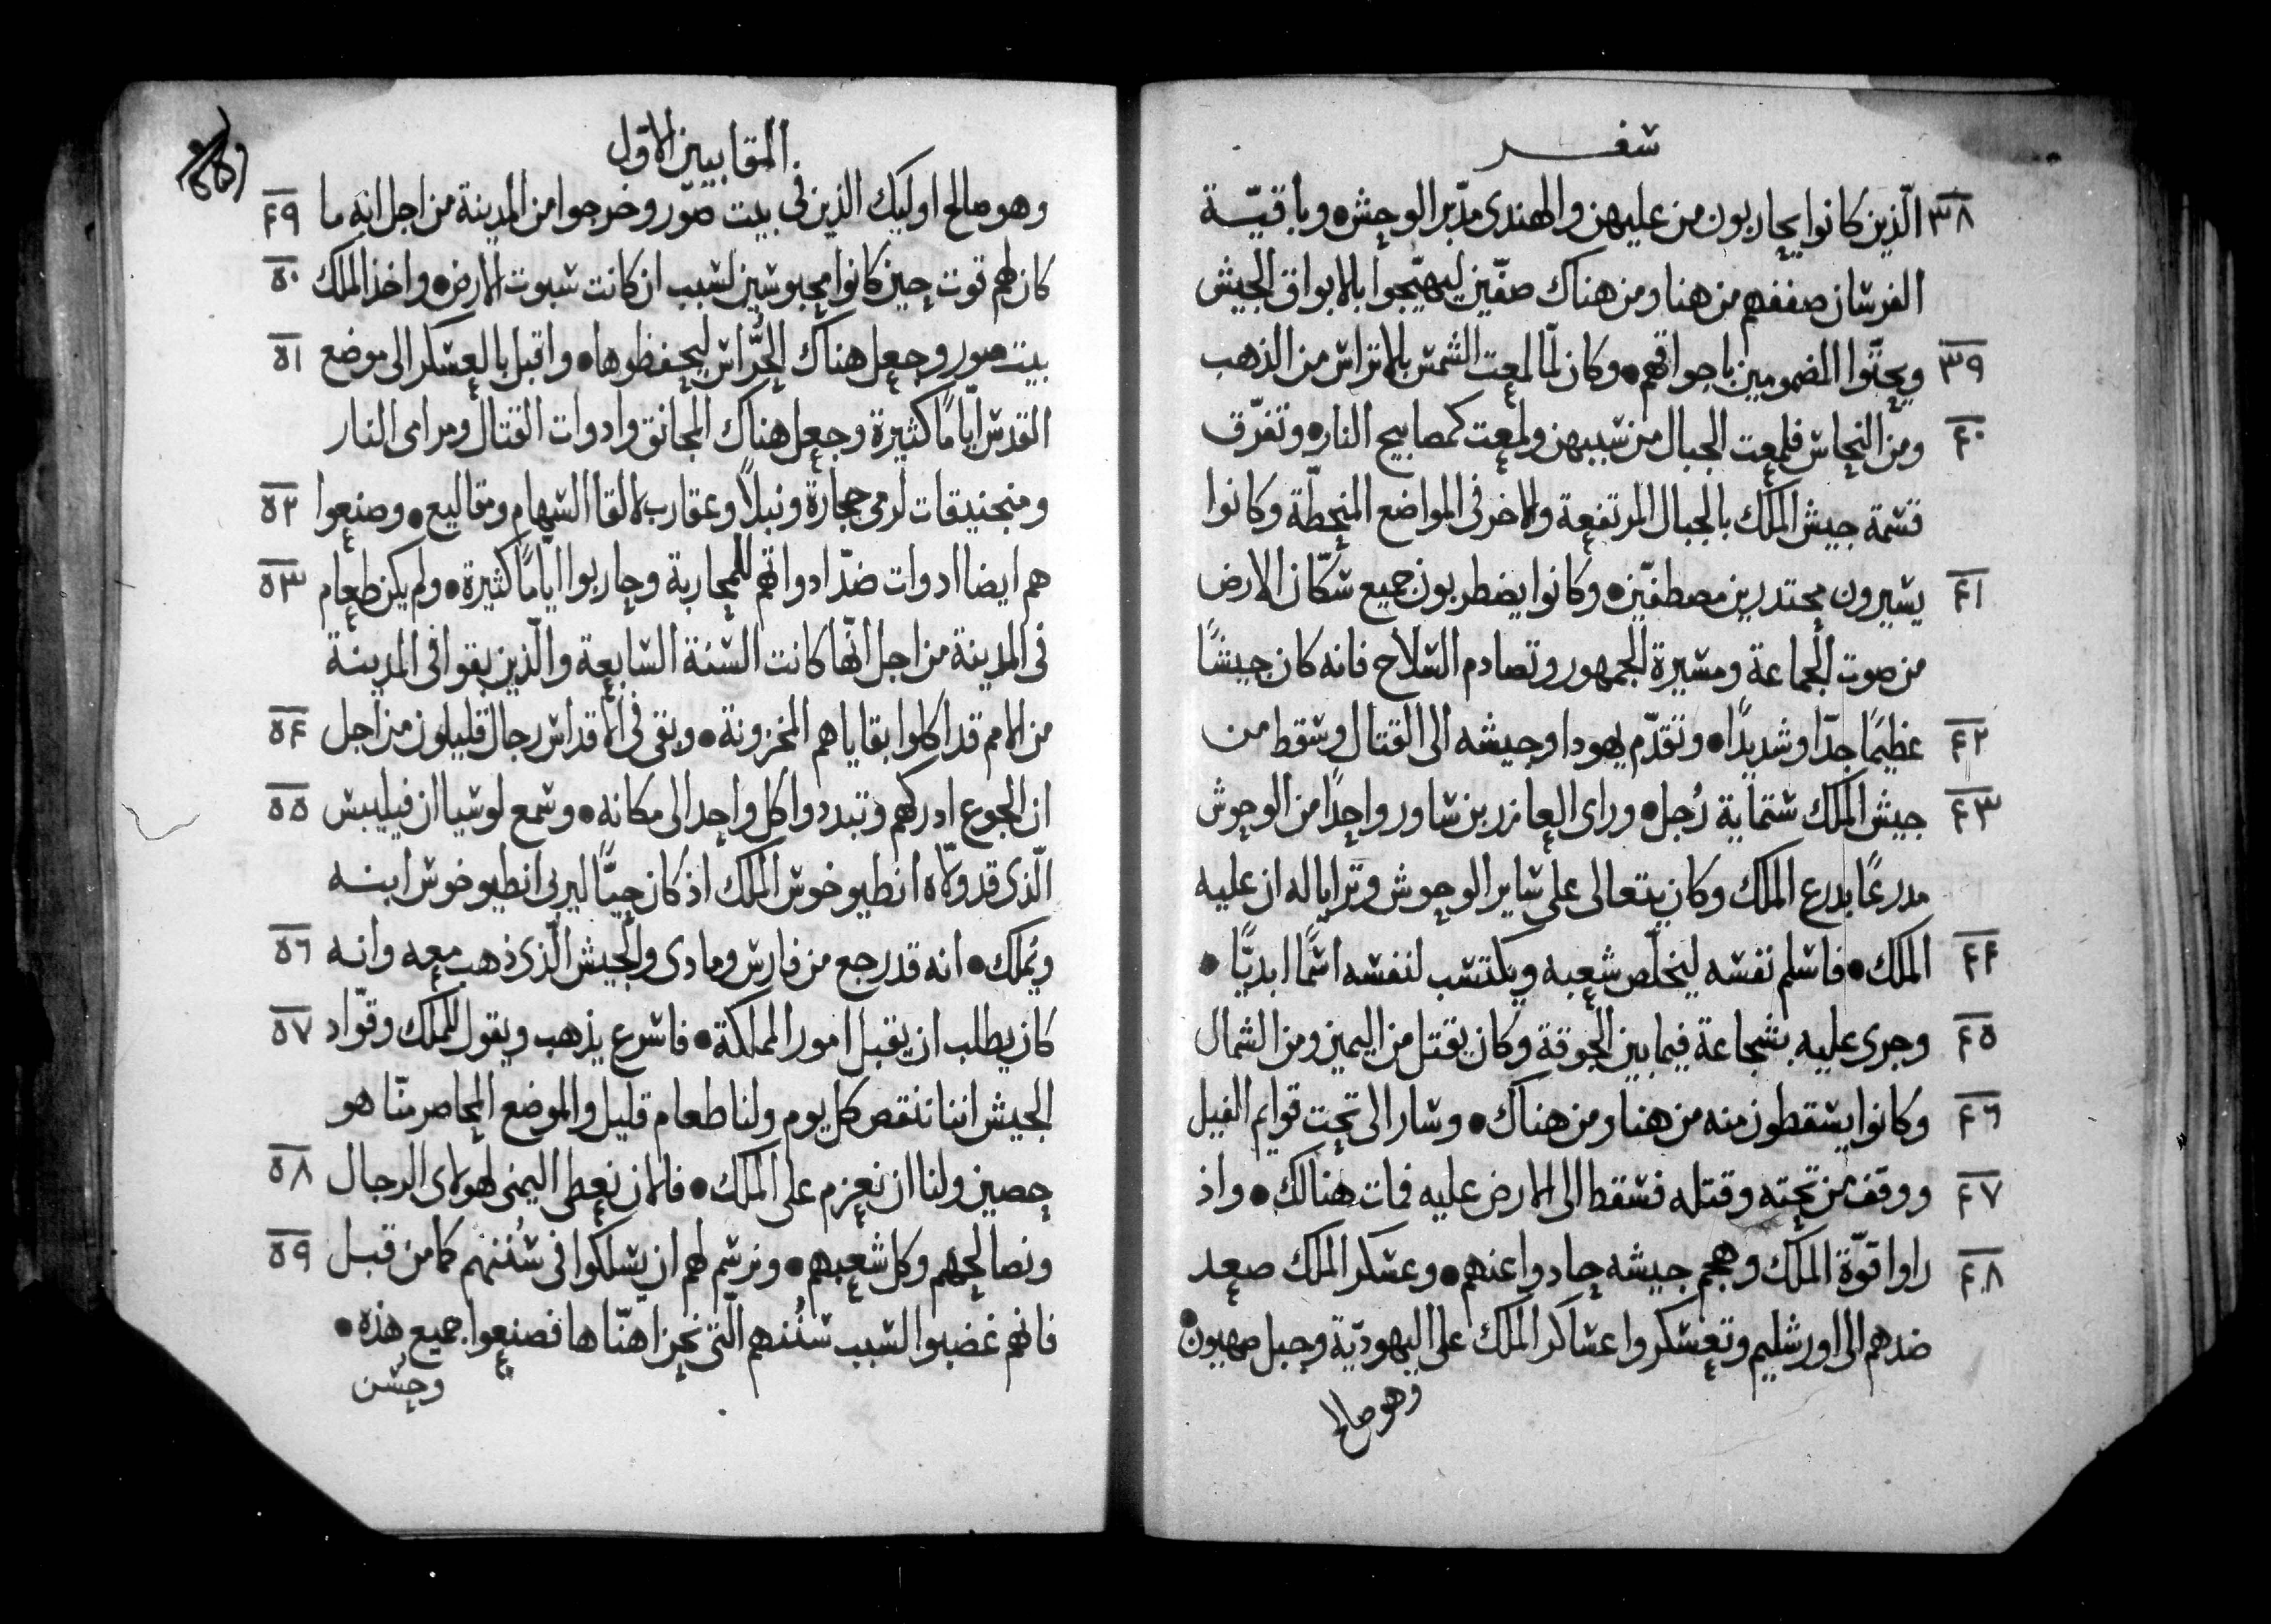 سفر
٣٨ الّذين كانوا يحاربون من عليهن والهندى مدّبر الوحش • وباقيّة
الفرسان صففهم من هنا ومن هناك صفّين ليهيّجوا بالابواق الجيش
٣٩ ويحثّوا المضمومين باجواقهم • وكان لمّا لمعت الشمس بالاتراس من الذهب
٤٠ ومن النحاس فلمعت الجبال من سببهن ولمعت كمصابيح النار • وتفرّق
قسمة جيش الملك بالجبال المرتفعة والاخر فى المواضع المنحطّة وكانوا
٤١ يسيرون محتدرين مصطفيّن • وكانوا يضطربون جميع سكّان الارض
من صوت الجماعة ومسيرة الجمهور وتصادم السلاح فانه كان جيشًا
٤٢ عظيمًا جدّا وشديدًا • وتقدّم يهودا وجيشه الى القتال وسقط من
٤٣ جيش الملك ستماية رُجل • وراى العازر بن ساور واحدًا من الوحوش
مدرعًا بدرع الملك وكان يتعالى على ساير الوحوش وترايا له ان عليه
٤٤ الملك • فاسلم نفسه ليخلّص شعبه ويكتسب لنفسه اسمًا ابديًّا •
٤٥ وجرى عليه بشجاعة فيما بين الجوقة وكان يقتل من اليمين ومن الشمال
٤٦ وكانوا يسقطون منه من هنا ومن هناك • وسار الى تحت قوايم الفيل
٤٧ ووقف من تحته وقتله فسقط الى الارض عليه فمات هنالك • واذ
٤٨ راوا قوّة الملك وهجم جيشه حادوا عنهم • وعسكر الملك صعد
ضدهم الى اورشليم وتعسكروا عساكر الملك على اليهوديّة وجبل صهيون •
وهو صالح
المقابيين الاوّل
وهو صالح اوليك الذين فى بيت صوّر وخرجوا من المدينة من اجل انه ما ٤٩
كان لهم قوت حين كانوا محبوسين لسبب ان كانت سبوت الارض • واخذ الملك ٥٠
بيت صور وجعل هناك الحُرّاس ليحفظوها • واقبل بالعسكر الى موضع ٥١
القدس ايّامًا كثيرة وجعل هناك المجانق وادوات القتال ومرامى النار
ومنجنيقات لرمى حجارة ونبلاً وعقارب لالقا السهام ومقاليع • وصنعوا ٥٢
هم ايضا ادوات ضدّ ادواتهم للمحاربة وحاربوا ايّامًا كثيرة • ولم يكن طعام ٥٣
فى المدينة من اجل انّها كانت السنة السابعة والّذين بقوا فى المدينة
من الامم قد اكلوا بقاياهم المخزونة • وبقى فى الاقداس رجال قليلون من اجل ٥٤
ان الجوع ادركهم وتبددوا كل واحد الى مكانه • وسمع لوسيا ان فيليبس ٥٥
الّذى قد ولّاه انطيوخوس الملك اذ كان حيًّا ليربى انطيوخوس ابنه
ويُملك • انه قد رجع من فارس ومادى والجيش الّذى ذهب معه وانه ٥٦
كان يطلب ان يقبل امور المملكة • فاسرع يذهب ويقول للملك وقوّاد ٥٧
الجيش اننا ننقص كل يوم ولنا طعام قليل والموضع المحاصر منّا هو
حصين ولنا ان نعزم على الملك • فالان نعطى اليمنى لهولاى الرجال ٥٨
ونصالحهم وكل شعبهم • ونرسم لهم ان يسلكوا فى سُننهم كما من قبل ٥٩
فانهم غضبوا لسبب سُننهم الّتى نحن اهنّاها فصنعوا جميع هذه •
وحسن